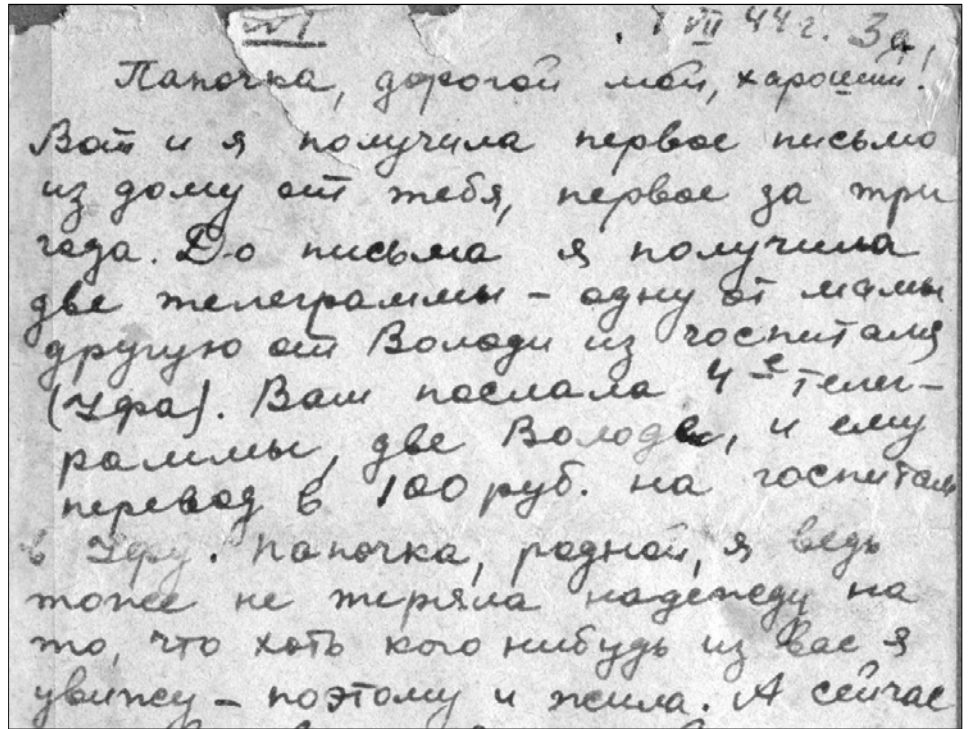 №1 1 VII 44 г.
Папочка, дорогой мой, хароший!
Вот и я получила первое письмо
из дому от тебя, первое за три
года. До письма я получила
две телеграммы – одну от мамы
другую от Володи из госпиталя
(Уфа). Вам послала 4-е телег-
раммы, две Володе, и ему
перевод в 100 руб. на госпиталь
в Уфу. Папочка, родной, я ведь
тоже не теряла надежду на
то, что хоть кого нибудь из вас я
увижу – поэтому и жила. А сейчас